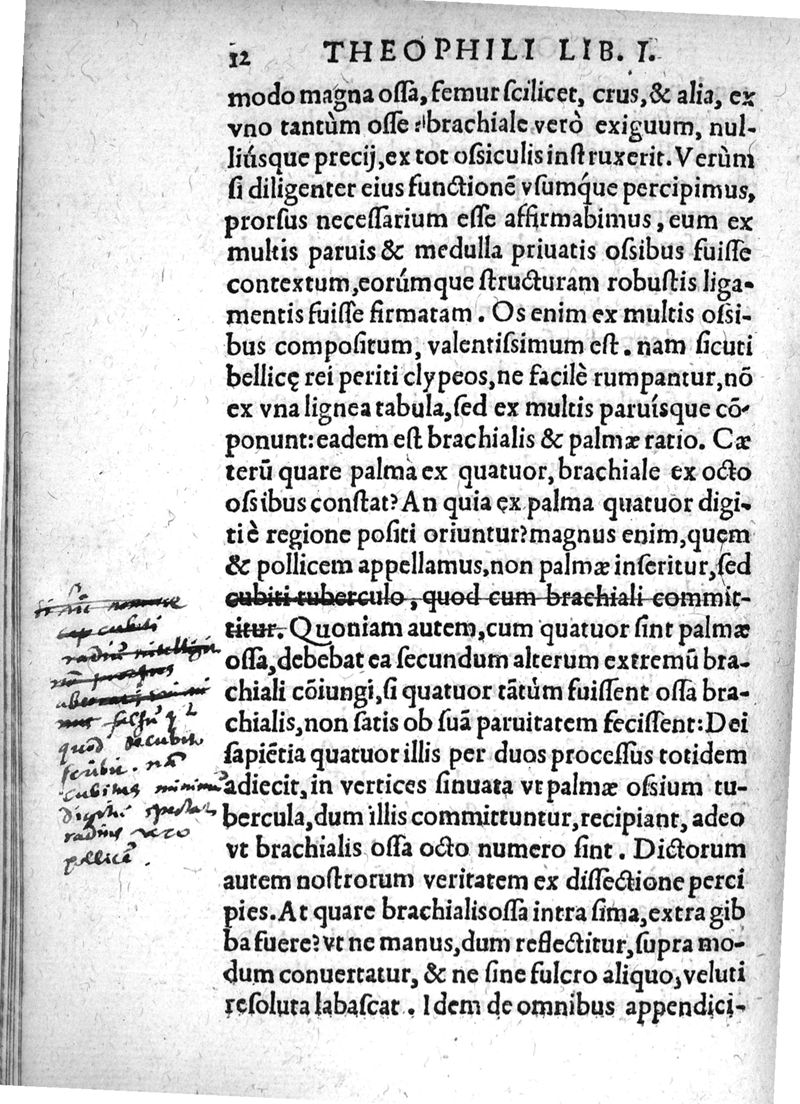 12 THEOPHILI LIB. I.
modo magna oſſa, femur ſcilicet, crus, & alia, ex
vno tantùm oſſe : brachiale verò exiguum, nul-
liúsque precij, ex tot oſsiculis inſtruxerit. Verùm
ſi diligenter eius functionē vſumq́ue percipimus,
prorſus neceſſarium eſſe affirmabimus, eum ex
multis paruis & medulla priuatis oſsibus fuiſſe
contextum, eorúmque ſtructuram robuſtis liga-
mentis fuiſſe firmatam. Os enim ex multis oſsi-
bus compoſitum, valentiſsimum eſt. nam ſicuti
bellicę rei periti clypeos, ne facilè rumpantur, nō
ex vna lignea tabula, ſed ex multis paruísque cō-
ponunt: eadem eſt brachialis & palmæ ratio. Cæ
terū quare palma ex quatuor, brachiale ex octo
oſsibus conſtat? An quia ex palma quatuor digi-
ti è regione poſiti oriuntur? magnus enim, quem
& pollicem appellamus, non palmæ inſeritur, ſed
cubiti tuberculo, quod cum brachiali commit-
titur. Quoniam autem, cum quatuor ſint palmæ
oſſa, debebat ea ſecundum alterum extremū bra-
chiali cōiungi, ſi quatuor tātùm fuiſſent oſſa bra-
chialis, non ſatis ob ſuā paruitatem feciſſent: Dei
ſapiētia quatuor illis per duos proceſſus totidem
adiecit, in vertices ſinuata vt palmæ oſsium tu-
bercula, dum illis committuntur, recipiant, adeo
vt brachialis oſſa octo numero ſint. Dictorum
autem noſtrorum veritatem ex diſſectione perci
pies. At quare brachialis oſſa intra ſima, extra gib
ba fuere? vt ne manus, dum reflectitur, ſupra mo-
dum conuertatur, & ne ſine fulcro aliquo, veluti
reſoluta labaſcat. Idem de omnibus appendici-
cubiti
radiū intelligit
falſū
quod de cubito
ſcribit. nā
cubitus minimū
digitū ſpectat
radius vero
pollicē.